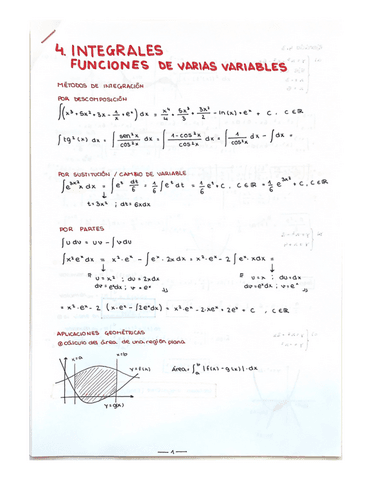 4. INTEGRALES
FUNCIONES DE VARIAS VARIABLES
MÉTODOS DE INTEGRACIÓN
POR DESCOMPOSICIÓN
∫(x³+5x²+3x-1/x+eˣ)dx = x⁴/4 + 5x³/3 + 3x²/2 - ln(x)+eˣ + C, C∈ℝ
∫tg²(x)dx = ∫ sen²x/cos²x dx = ∫ 1-cos²x/cos²x dx = ∫ 1/cos²x dx - ∫dx =
POR SUSTITUCIÓN / CAMBIO DE VARIABLE
∫e^(3x²) x dx = ∫eᵗ dt/6 = 1/6 ∫eᵗ dt = 1/6 eᵗ + C, C∈ℝ = 1/6 e^(3x²) + C, C∈ℝ
↓
t=3x² ; dt=6xdx
POR PARTES
∫u dv = uv - ∫v du
∫x²eˣdx = x²·eˣ - ∫eˣ·2xdx = x²·eˣ - 2∫eˣ·xdx =
↓ ↓
u=x² ; du=2xdx u=x ; du=dx
dv=eˣdx ; v=eˣ dv=eˣdx ; v=eˣ
= x²·eˣ - 2 (x·eˣ - ∫eˣdx) = x²·eˣ - 2·xeˣ + 2eˣ + C, C∈ℝ
APLICACIONES GEOMÉTRICAS
cálculo del área de una región plana
x=a x=b
y=f(x) Área = ∫ₐᵇ |f(x)-g(x)|·dx
y=g(x)
1